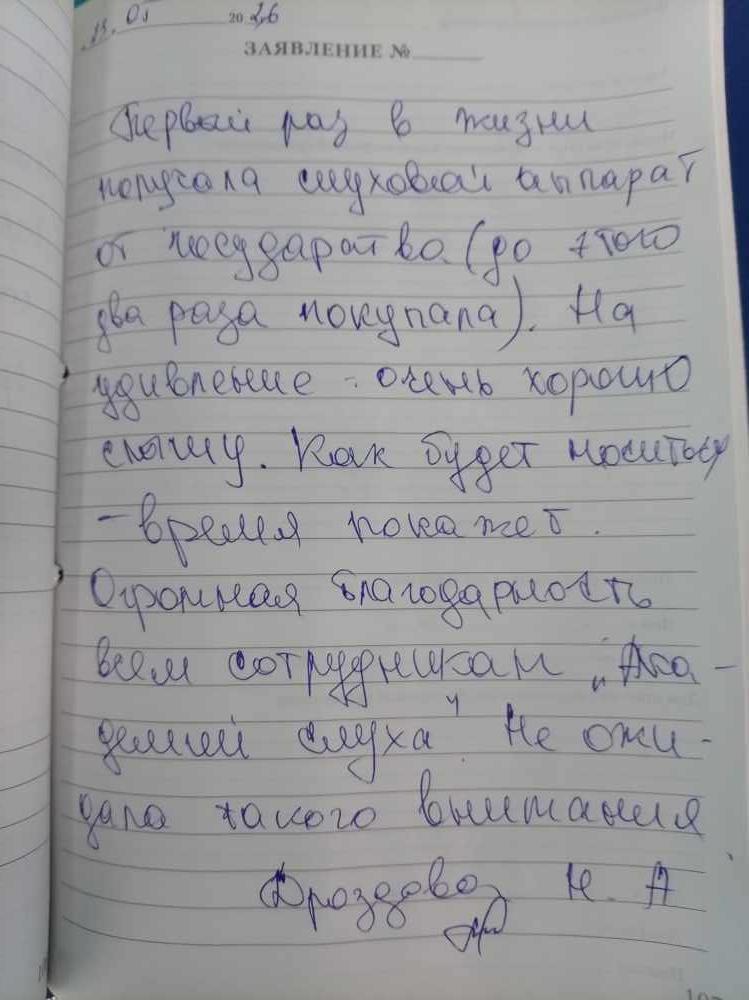 13. 05 2026
ЗАЯВЛЕНИЕ №
Первый раз в жизни
получала слуховой аппарат
от государства (до этого
два раза покупала). На
удивление - очень хорошо
слышу. Как будет носиться
- время покажет.
Огромная благодарность
всем сотрудникам „Ака-
демии слуха" Не ожи-
дала такого внимания
Дроздова Н. А